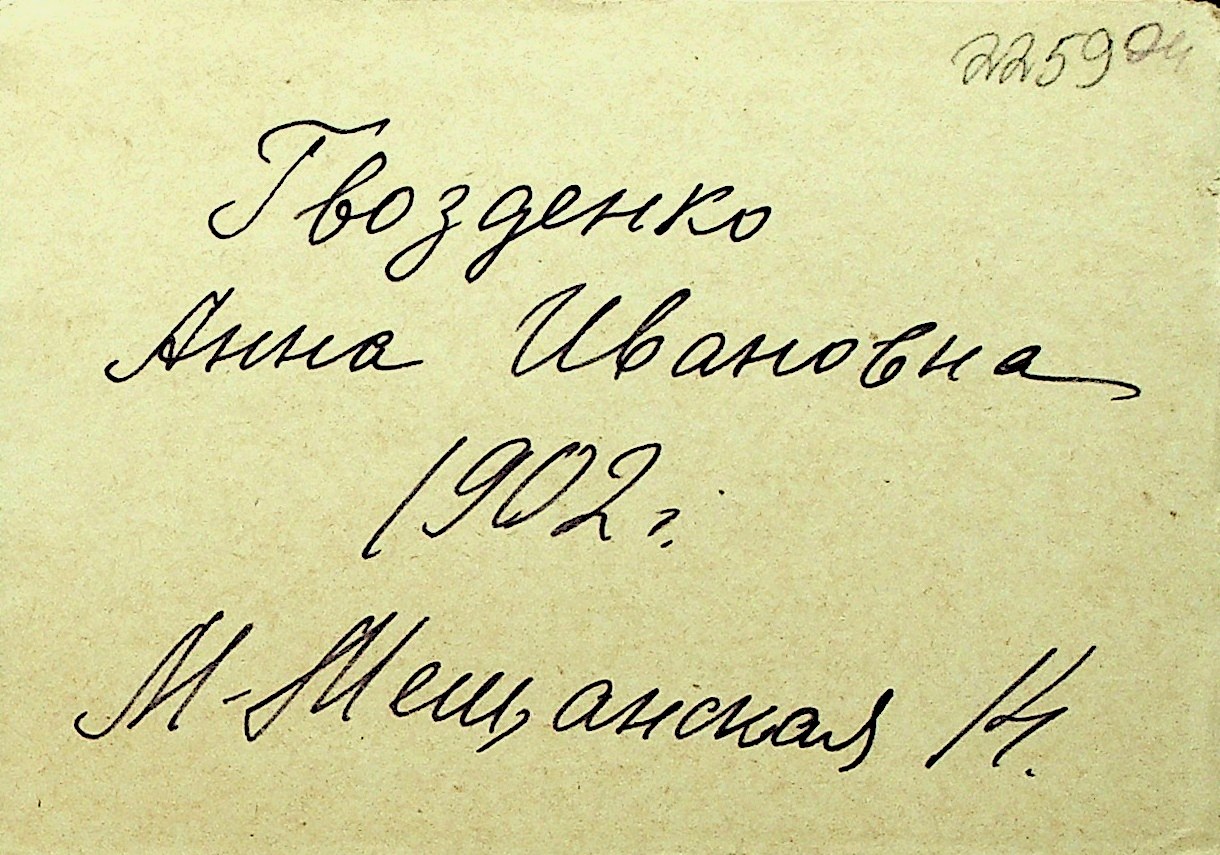 Гвозденко
Анна Ивановна
1902 г.
М-Мещанская